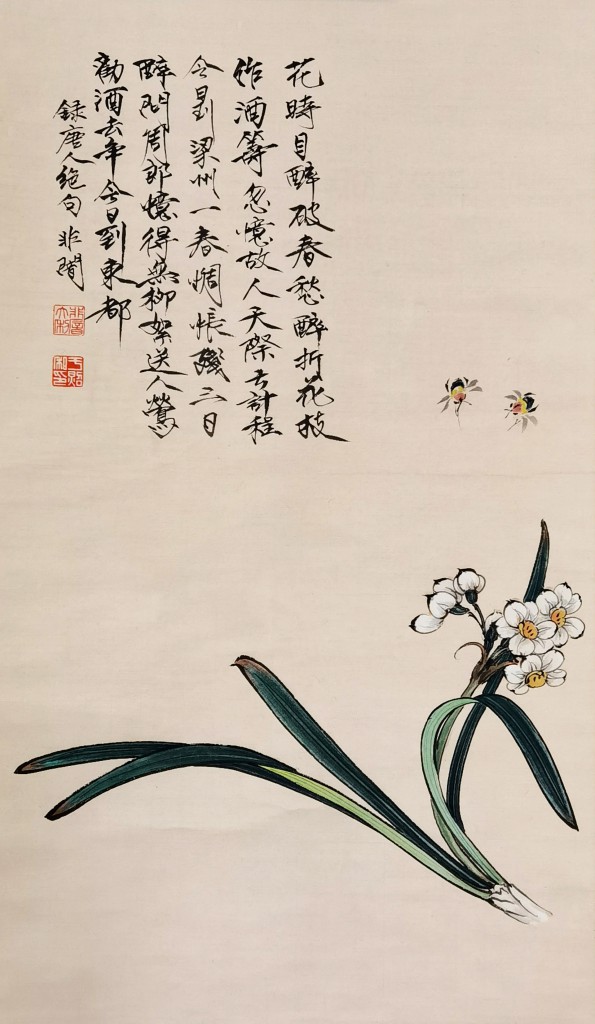 花時目醉破春愁醉折花枝
作酒籌忽憶故人天際去計程
今日到梁州一春惆悵殘三日
醉問周郎憶得無柳絮送人鶯
勸酒去年今日到東都
録唐人絕句非闇